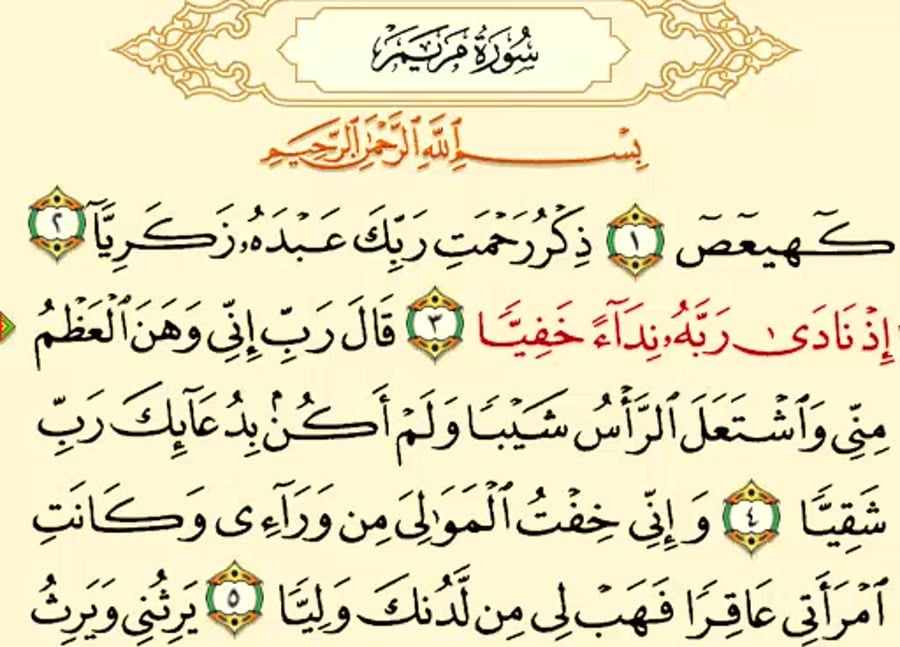 سُورَةُ مَرْيَمَ
بِسْمِ ٱللَّهِ ٱلرَّحْمَٰنِ ٱلرَّحِيمِ
كٓهيعٓصٓ ١ ذِكْرُ رَحْمَتِ رَبِّكَ عَبْدَهُۥ زَكَرِيَّآ ٢
إِذْ نَادَىٰ رَبَّهُۥ نِدَآءً خَفِيًّا ٣ قَالَ رَبِّ إِنِّى وَهَنَ ٱلْعَظْمُ
مِنِّى وَٱشْتَعَلَ ٱلرَّأْسُ شَيْبًا وَلَمْ أَكُنۢ بِدُعَآئِكَ رَبِّ
شَقِيًّا ٤ وَإِنِّى خِفْتُ ٱلْمَوَٰلِىَ مِن وَرَآءِى وَكَانَتِ
ٱمْرَأَتِى عَاقِرًا فَهَبْ لِى مِن لَّدُنكَ وَلِيًّا ٥ يَرِثُنِى وَيَرِثُ